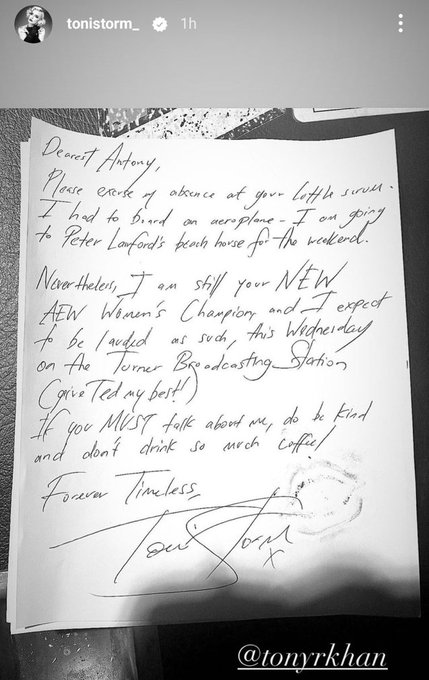 tonistorm_ 1h
Dearest Antony,
Please excuse my absence at your little scrum.
I had to board an aeroplane - I am going
to Peter Lawford's beach house for the weekend.
Nevertheless, I am still your NEW
AEW Women's Champion and I expect
to be lauded as such, this Wednesday
on the Turner Broadcasting Station
(give Ted my best!)
If you MUST talk about me, do be kind
and don't drink so much coffee!
Forever Timeless,
Toni Storm
x
@tonyrkhan